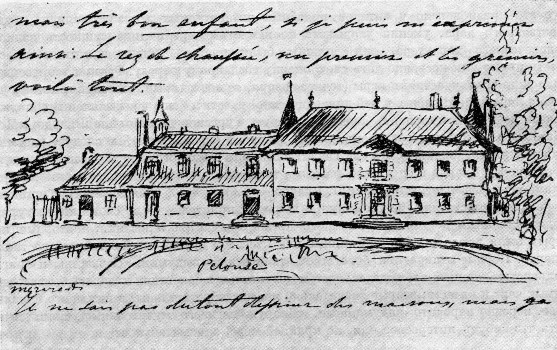 mais très bon enfant, si je puis m'exprimer
ainsi. Le rez de chaussée, un premier et les greniers,
voilà tout.
Pelouse
Je ne sais pas du tout dessiner des maisons, mais ça